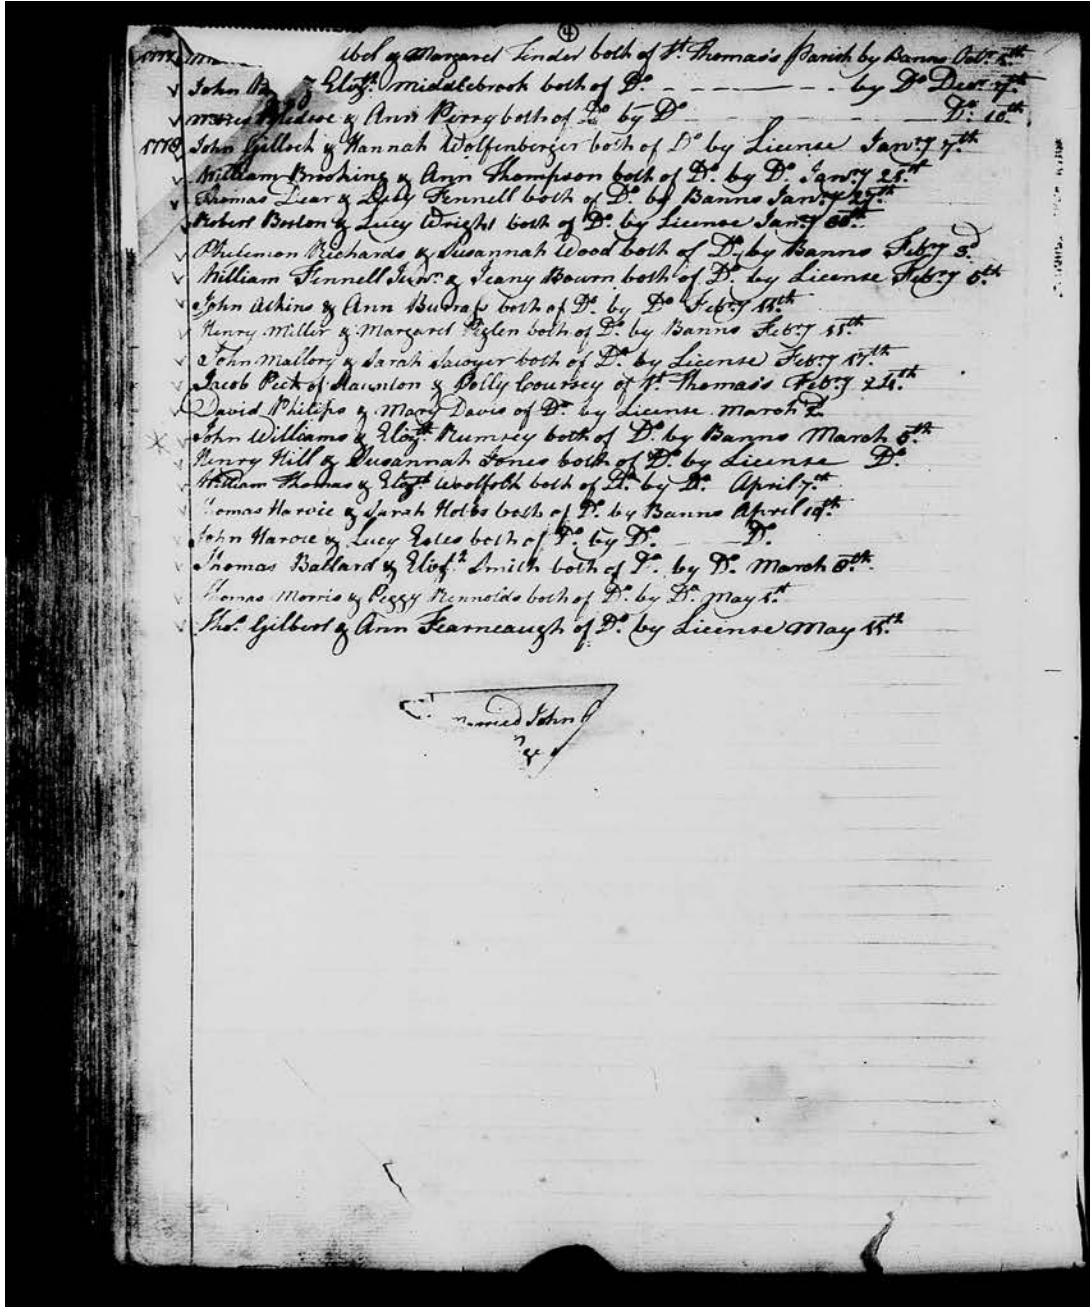 ④
ubel & Margaret Tinder both of St. Thomas's Parish by Banns Octr. 5th
John B Elizth. Middlebrook both of Do. - - - - - - by Do Decr. 7th
& Ann Perry both of Do by Do Do. 10th
1778 John Gillock & Hannah Wolfenberger both of Do by License Jany 7th
William Brooking & Ann Thompson both of Do. by Do. Jany 21st
Thomas Dear & Fennell both of Do. by Banns Jany 27th
Robert Boston & Lucy Wright both of Do. by License Jany 30th
Philemon Richards & Susannah Wood both of Do by Banns Feby 3d
William Fennell Junr. & Jeany Bourn both of Do. by License Feby 5th
John Atkins & Ann both of Do. by Do Feby 11th
Henry Miller & Margaret both of Do. by Banns Feby 11th
John Mallory & Sarah Sawyer both of Do. by License Feby 17th
Jacob Peck of Staunton & Polly Coursey of St. Thomas's Feby 24th
David Philips & Mary Davis of Do. by License March 2
John Williams & Elizth. Rumsey both of Do. by Banns March 5th
Henry Hill & Susannah Jones both of Do. by License Do.
William Thomas & Elizth Woolfolk both of Do. by Do. April 7th
Thomas Harvie & Sarah Hobbs both of Do. by Banns April 19th
John & Lucy Estes both of Do. by Do. Do.
Thomas Ballard & Elizh Smith both of Do. by Do. March 8th
Thomas Morris & Peggy Rennolds both of Do. by Do. May 1st
Thos. Gilbert & Ann Fearneaugh of Do. by License May 11th
married John